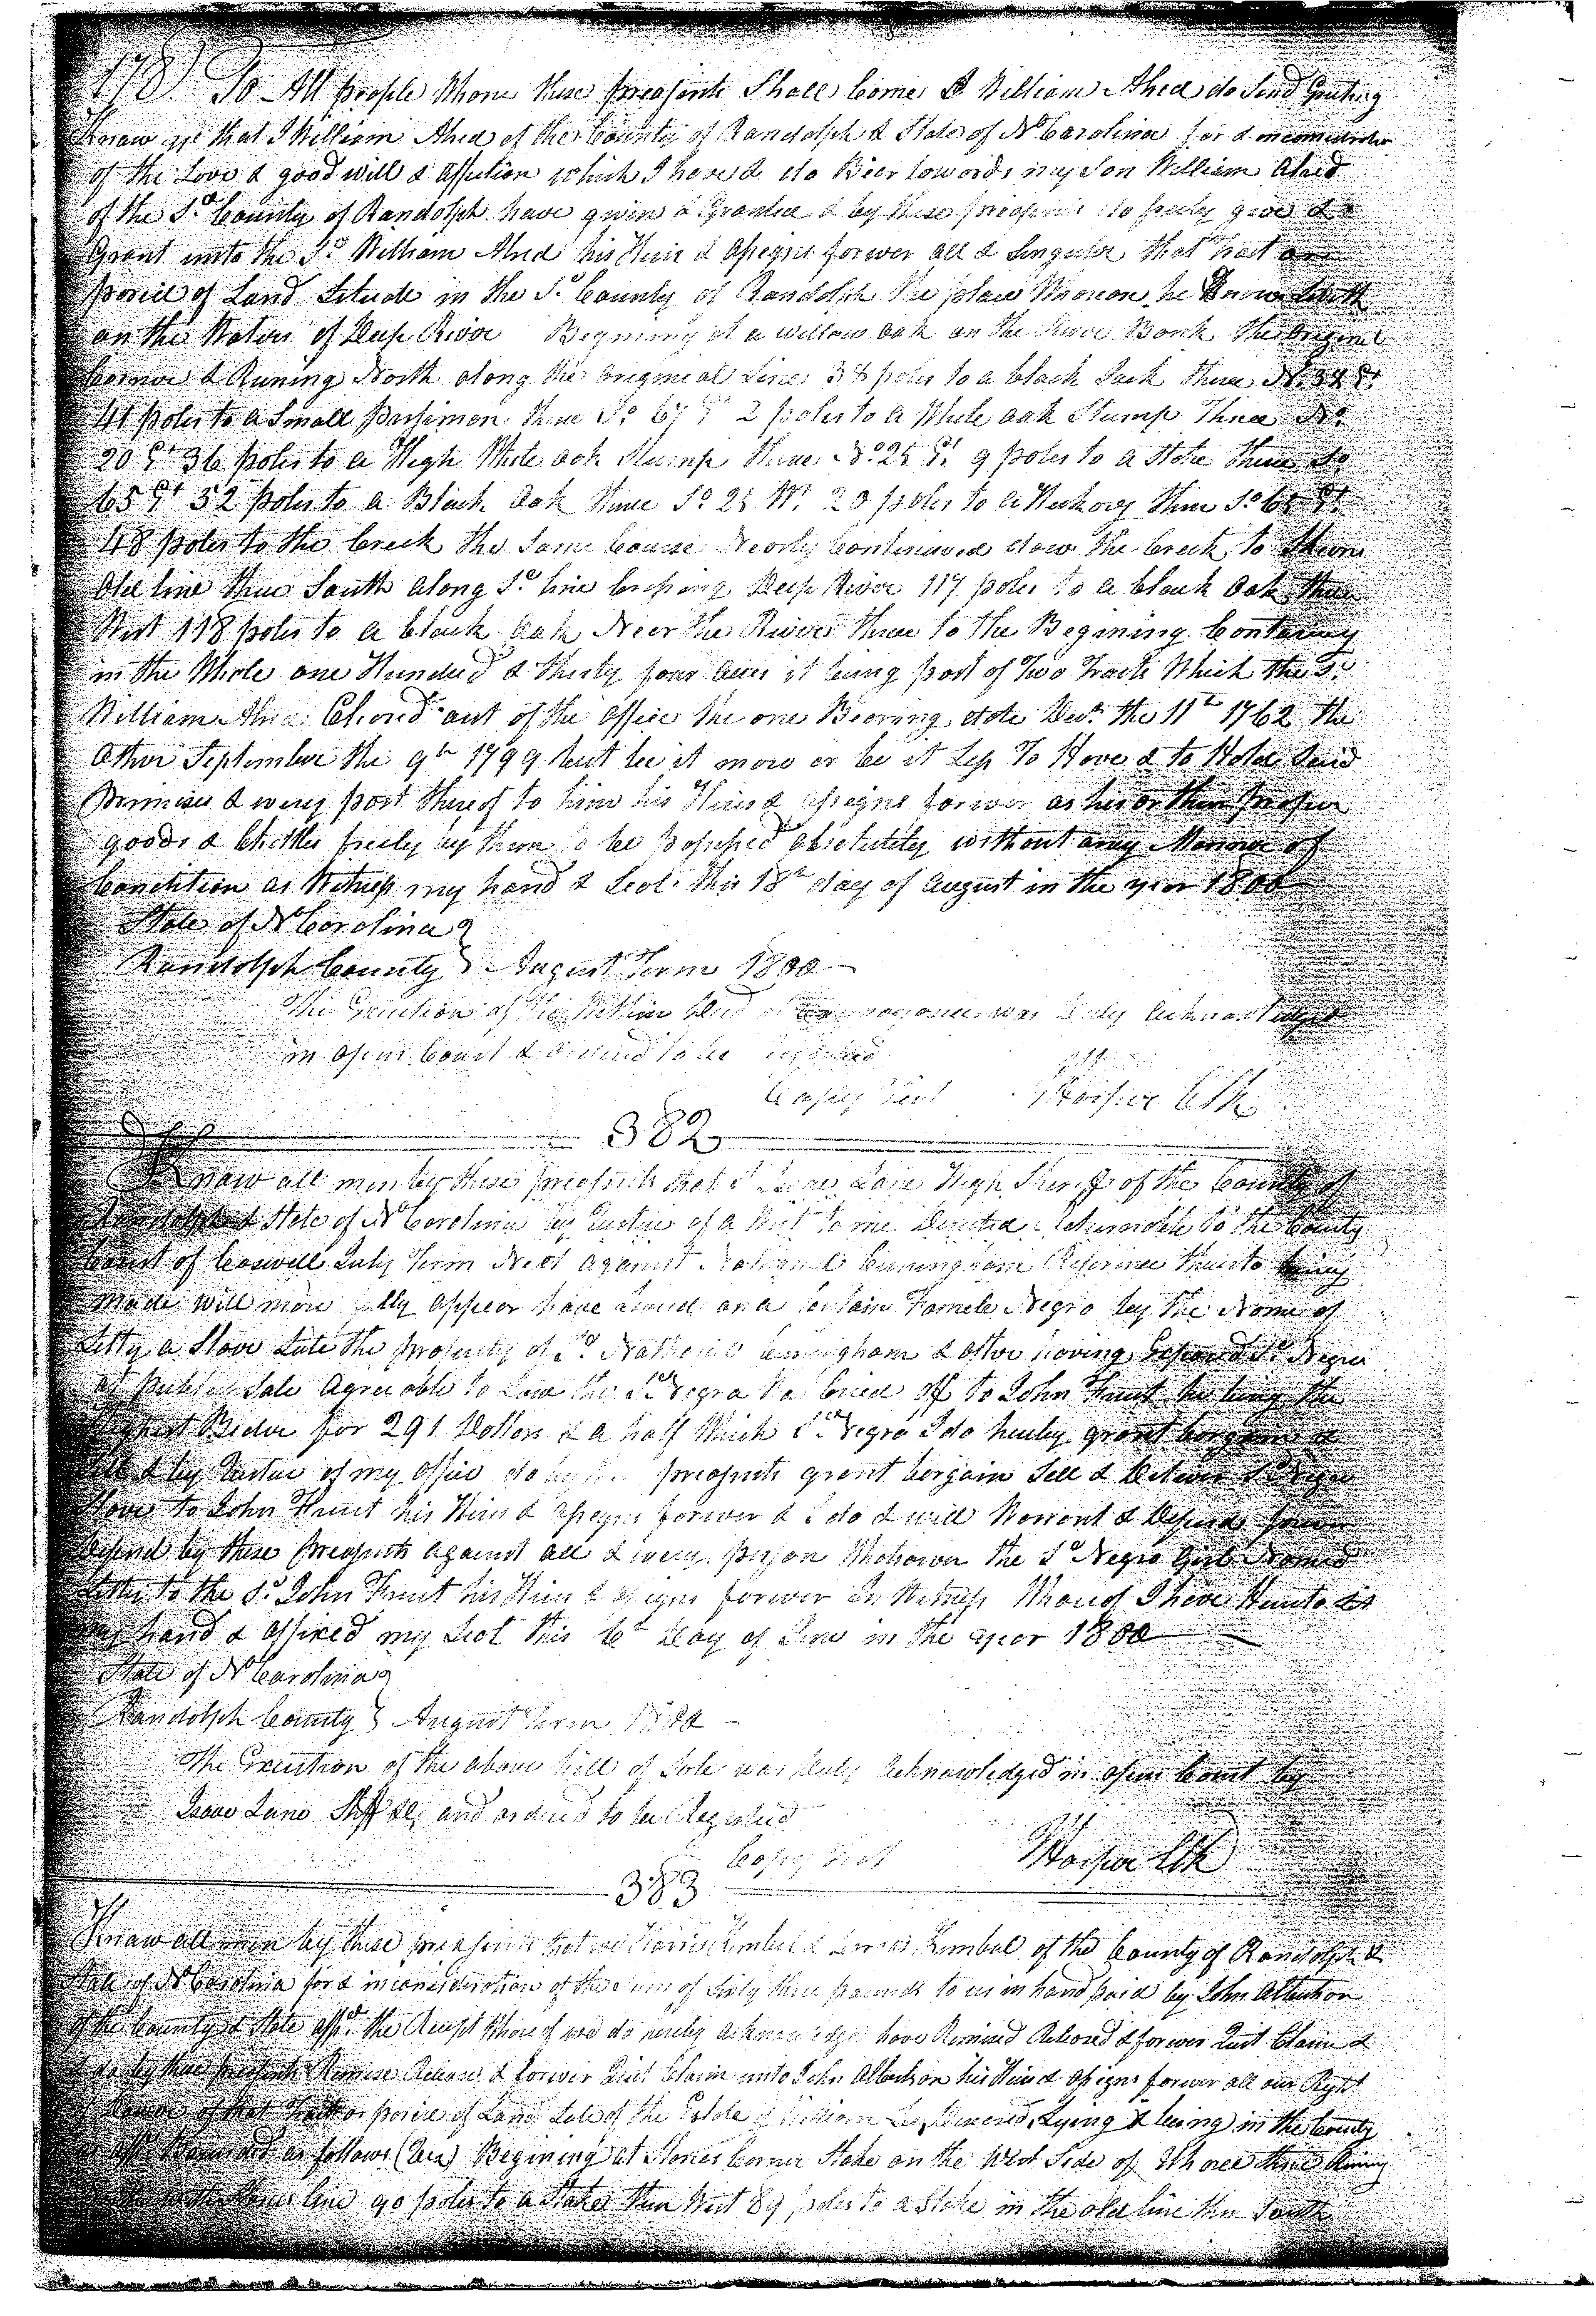 178 To All people Whom these preasents Shall Come I William Alred do Send Greeting
Know ye that I William Alred of the County of Randolph & State of No Carolina for & in consideration
of the Love & good will & affection which I have & do Bear towards my Son William Alred
of the Sd County of Randolph have given & Granted & by these preasents do freely give &
Grant unto the Sd William Alred his Heirs & assigns forever all & Singular that tract or
parcel of Land Situde in the Sd County of Randolph the place Whereon he Know
on the Waters of Deep River Begining at a willow oak on the River Bank the original
Cornor & Runing North along the origineal line 38 poles to a black Jack thence No 34 Et
41 poles to a Small parsimon thence So 67 Et 2 poles to a White oak Stump Thence No
20 Et 36 poles to a High White oak Stump thence No 25 Et 9 poles to a Stake thence So
65 Et 52 poles to a Black Oak thence So 25 Wt 20 poles to a Heckory thence So 65 Et
48 poles to the Creek the Same Course Nearly Continued down the Creek to
Old line thence South along Sd line Crossing Deep River 117 poles to a black Oak thence
West 118 poles to a black Oak Neer the River thence to the Begining Containing
in the Whole one Hundred & thirty four acres it being part of Two Tracts Which the Sd
William Alred out of the office the one Bearing date Dect the 11th 1762 the
Other September the 9th 1799 but be it more or be it Less To Have & to Hold Said
Primises & every part thereof to him his Heirs & assigns forever as his or their proper
goods & Chattles freely by them to be Possessed absolutely without any Manner of
Condition as Witness my hand & Seal this 18th day of August in the year 1800
State of No Carolina
Randolph County August Term 1800
The Execution of the Within Deed of was Duly Acknowledged
in open Court & ordered to be registered
Copy Test Harper Clk
382
Know all men by these preasents that I Isaac Lane High Sheriff of the County of
Randolph & State of No Carolina by Vertue of a Writ to me Directed Returnable to the County
Court of Caswell July Term Next against Nathaniel Cuningham Referance thereto being
made will more fully appear have on a Certain Famele Negro by the Name of
Letty a Slave Late the property of Sd Nathaniel Cuningham & after having Exposed Sd Negro
at publick Sale Agreeable to Law the Sd Negro Was Cried off to John Hunt he being the
Highest Bider for 291 Dollars & a half Which Sd Negro I do hereby grant bargain &
Sell & by Vertue of my office do by these preasents grant bargain Sell & Deliver Sd Negro
Slave to John Hunt his Heirs & assigns forever & I do & will Warrant & Defend forever
Defend by these preasents against all & every person Whatsoever the Sd Negro Girl Named
Letty to the Sd John Hunt his Heirs & assigns forever In Witness Whereof I have Hereunto Set
my hand & affixed my Seal this 6th Day of June in the year 1800
State of No Carolina
Randolph County August Term 1800
The Execution of the above bill of Sale was Duly Acknowledged in open Court by
Isaac Lane Shff and ordered to be Registered
Copy Test Harper Clk
383
Know all men by these preasents that we Kimbel & Kimbal of the County of Randolph &
State of No Carolina for & in consideration of the Sum of Sixty three pounds to us in hand paid by John Allred
of the County & State affd the Receipt Whereof we do hereby acknowledge have Remised Released & forever Quit Claim &
do by these preasents Remise Release & forever Quit Claim unto John his Heirs & assigns forever all our Right
of that Tract or parcel of Land Late of the Estate of William Deceased Lying & being in the County
as affd Bounded as follows (Viz) Begining at Corner Stake on the West Side of thence Runing
line 90 poles to a Stake then West 89 poles to a Stake in the old line then South